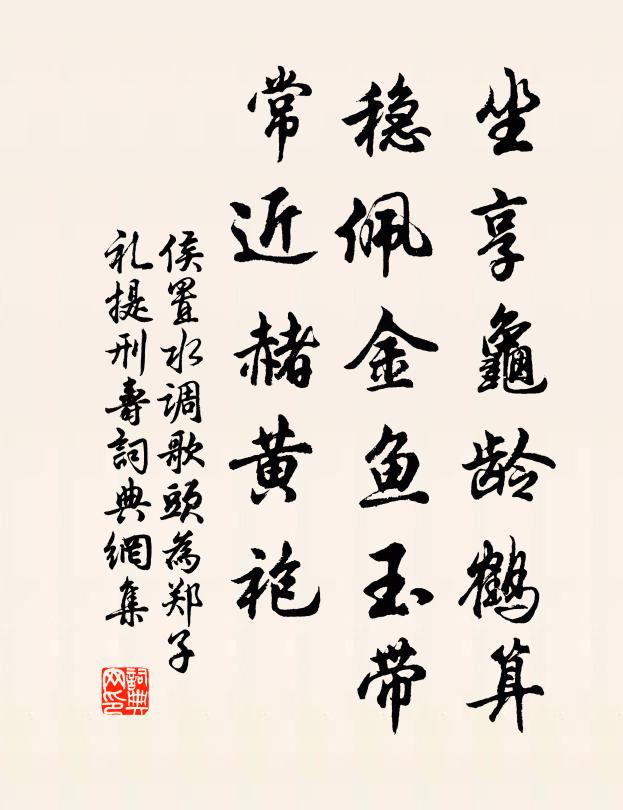 坐享龜龄鹤算
稳佩金鱼玉带
常近赭黄袍
侯置水调歌頭為郑子
礼提刑壽詞典網集
詞典网印